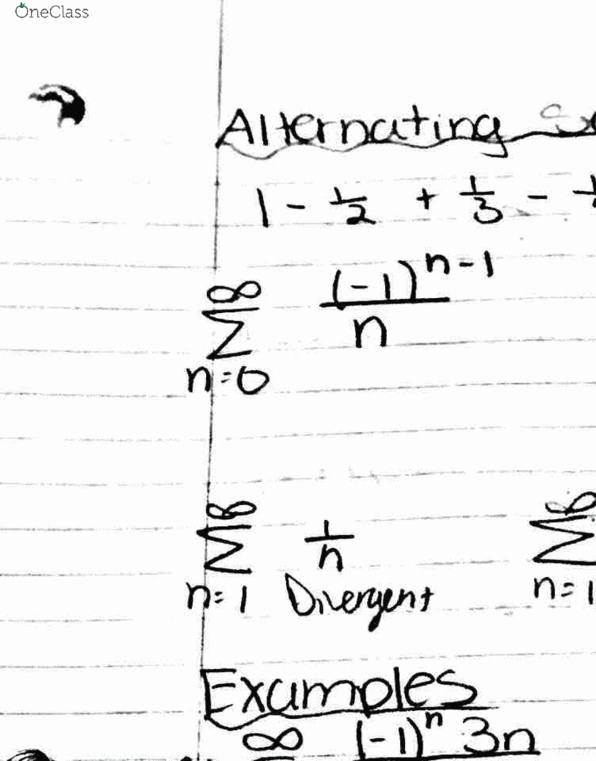 OneClass
Alternating
1 - 1/2 + 1/3 -
∞
Σ (-1)^{n-1}/n
n=0
∞ ∞
Σ 1/n Σ
n=1 Divergent n=1
Examples
∞ (-1)^n 3n